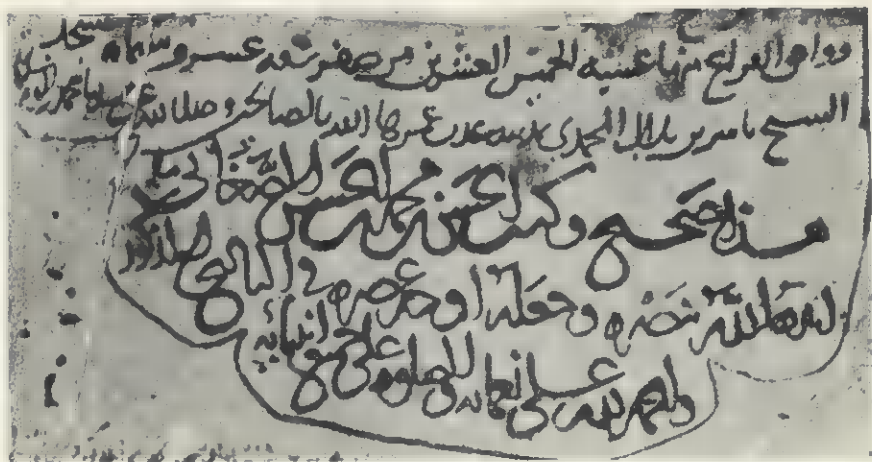 ووافق الفراغ منها عشية الخميس العشرين من صفر سنة عشر وستمائة بمسجد
الشيخ ياسر بن بلال المحمدي بمدينة عدن عمرها الله بالصالحين وصلى الله على سيدنا محمد
هذا صحيح وكتب الحسن بن محمد بن الحسن الصغاني
ايده الله بنصره وجعله اوحد عصره في التاريخ المذكور
والحمد لله على نعمائه والصلوة على جميع انبيائه